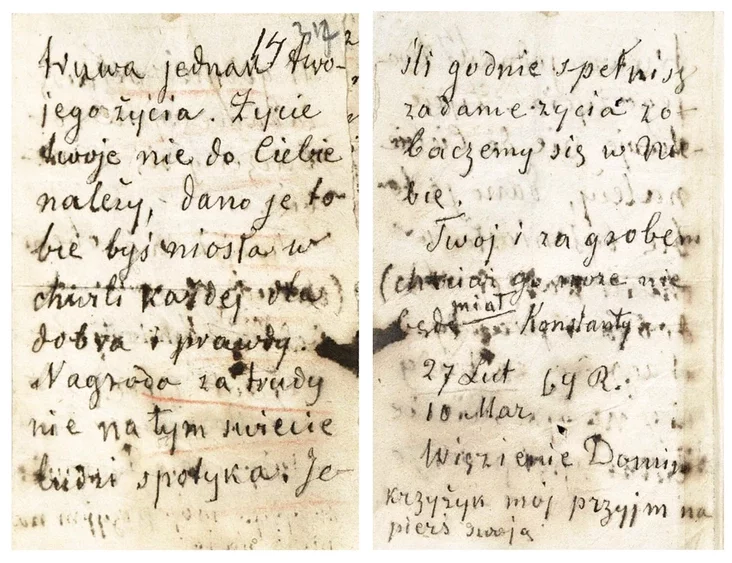 317
17
trwa jednak two-
jego życia. Życie
twoje nie do Ciebie
należy, dano je to-
bie byś niosła w
chwili każdej dla
dobra i prawdy.
Nagroda za trudy
nie na tym świecie
ludzi spotyka. Je-
śli godnie spełnisz
zadanie życia zo-
baczemy się w Nie-
bie.
Twoj i za grobem
(chociaż go może nie
będę miał Konstanty.
27 Lut 64 R.
10 Mar
Więzienie Domin
krzyżyk moj przyjm na
pierś swoją